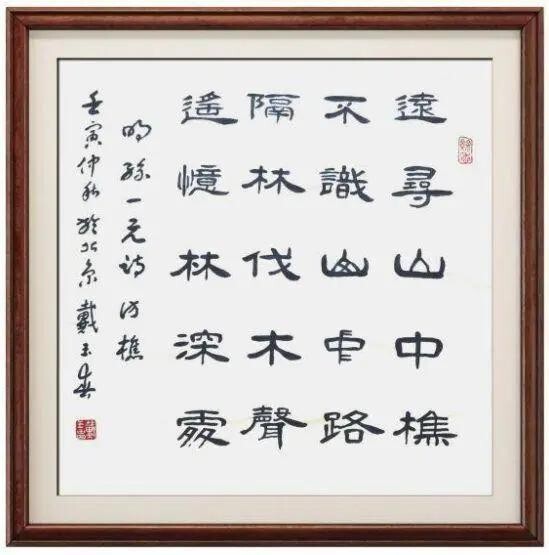 遠尋山中樵
不識山中路
隔林伐木聲
遙憶林深處
明孫一元诗访樵
壬寅仲秋於北京戴玉